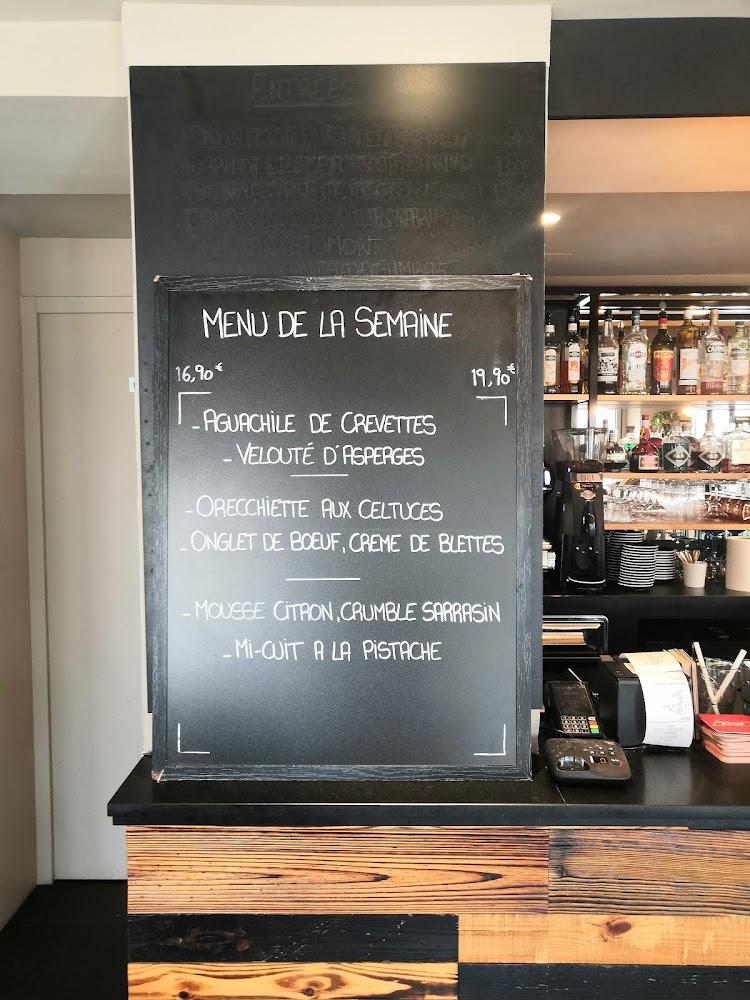 ENTREES
MENU DE LA SEMAINE
16,90€ 19,90€
- AGUACHILE DE CREVETTES
- VELOUTÉ D'ASPERGES
- ORECCHIETTE AUX CELTUCES
- ONGLET DE BOEUF, CREME DE BLETTES
- MOUSSE CITRON, CRUMBLE SARRASIN
- MI-CUIT A LA PISTACHE
PICON